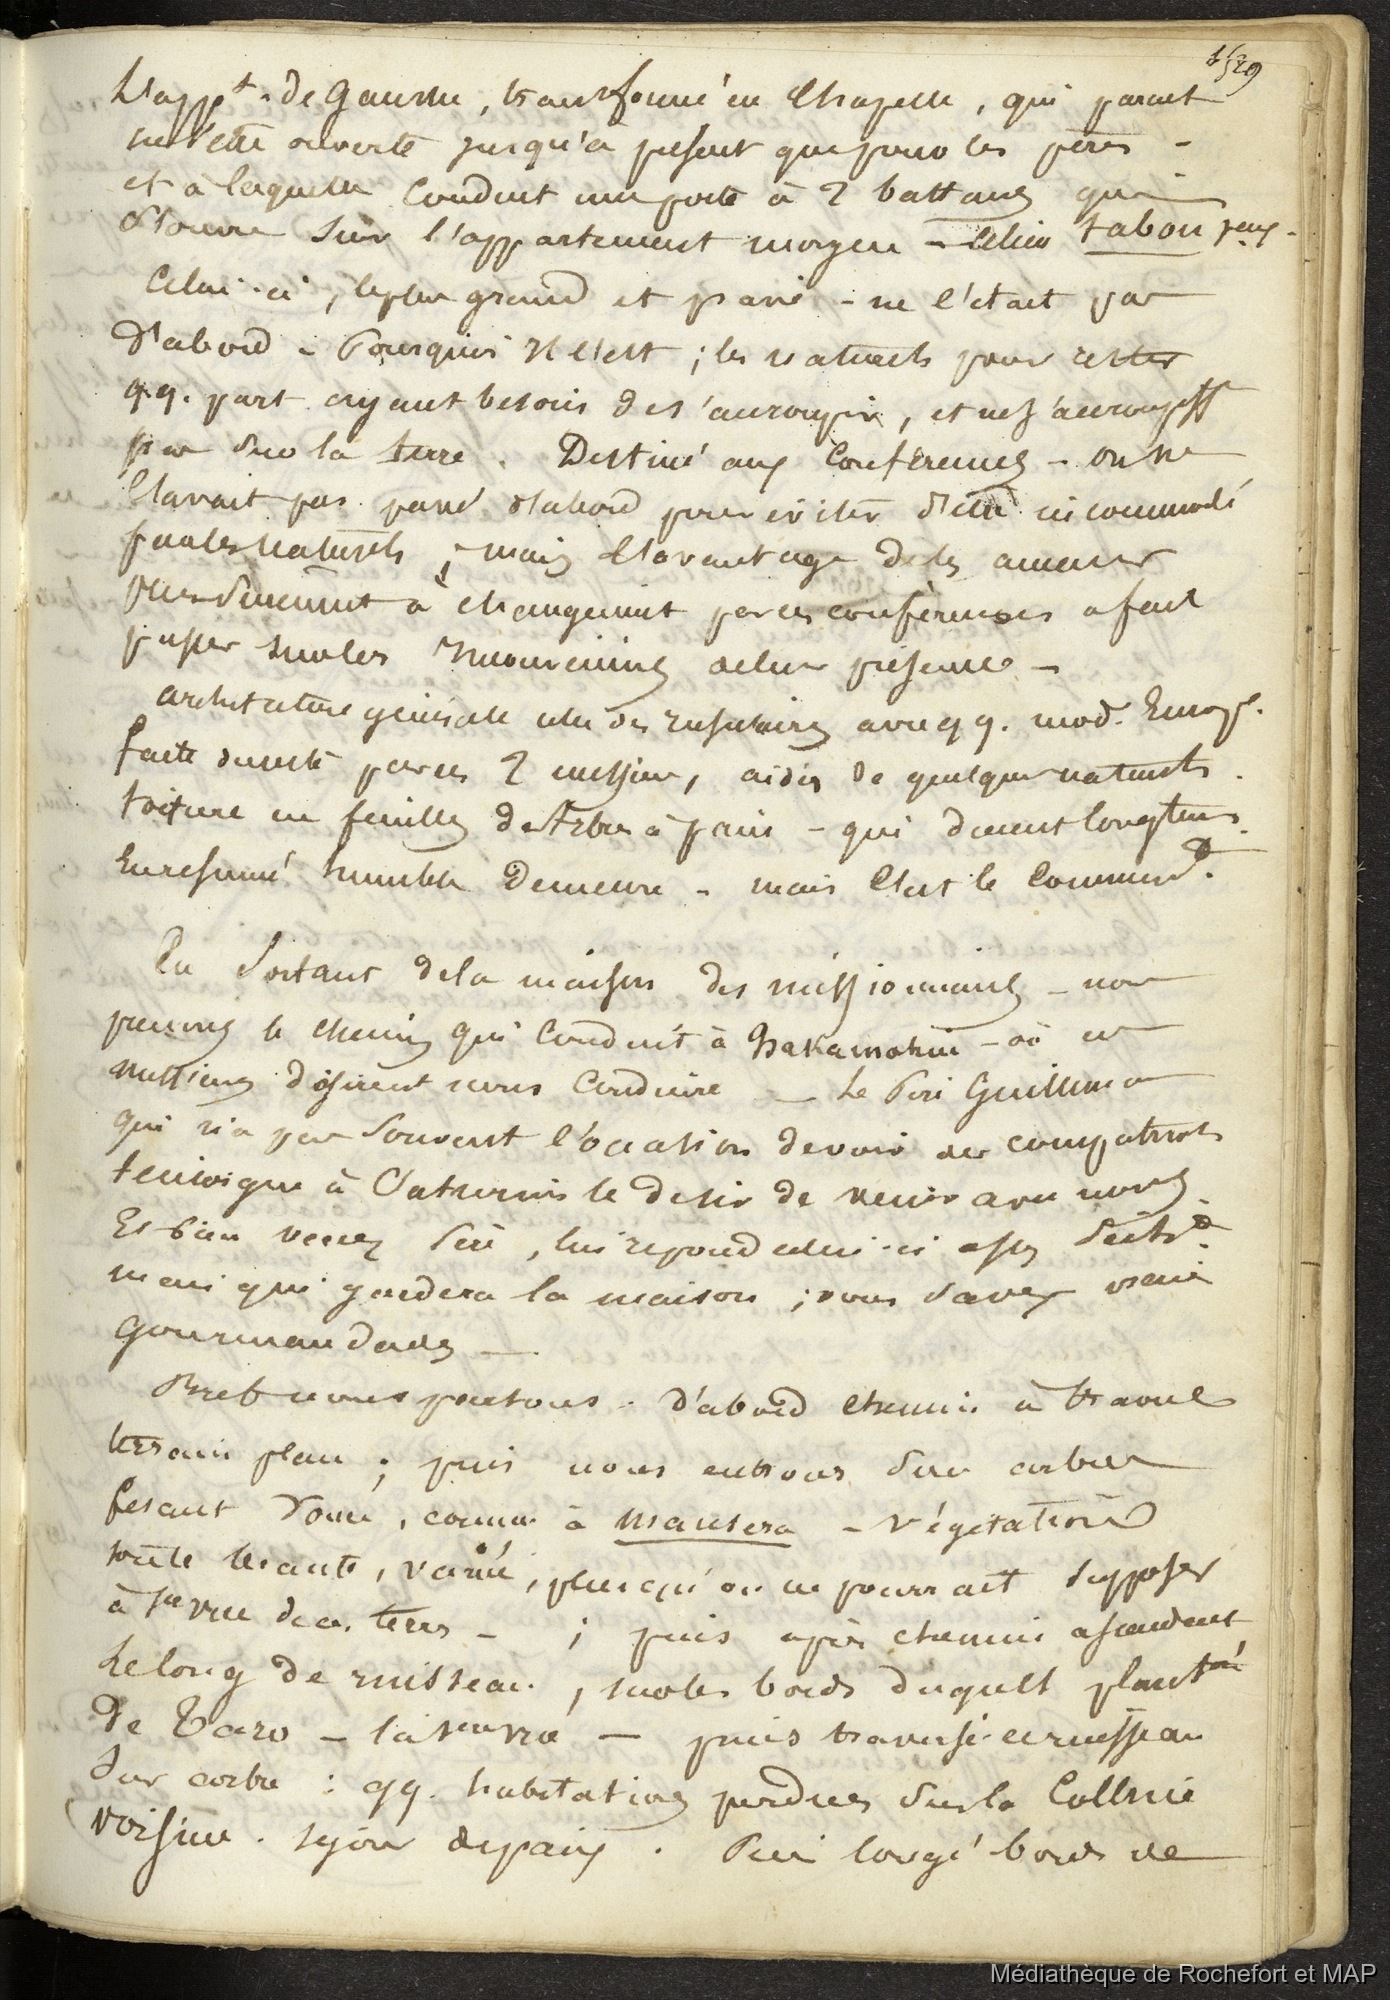 529
L'appt. de Gauche, transformé en Chapelle, qui parait
ne l'être ouverte jusqu'à présent que pour les pères -
et à laquelle Conduit une porte à 2 battans qui
s'ouvre sur l'appartement moyen - Celui tabou
Celui-ci, le plus grand et pavé - ne l'était pas
d'abord - Pourquoi Il l'est ; les naturels pour rester
q.q. part ayant besoin de s'accroupir, et ne s'accroupisst
pas sur la terre. Destiné aux Conférences - on ne
l'avait pas pavé d'abord pour éviter d'être incommodé
par les naturels ; mais l'avantage de les amener
plus surement à changement par ces conférences a fait
passer sur les inconveniens de leur présence -
architecture générale celle des insulaires avec q q. mod. Europ.
faite du reste par ces 2 messieurs, aidés de quelques naturels.
toiture en feuilles d'Arbre à pain - qui durent longtems.
En résumé humble Demeure - mais C'est le Commenct.
En Sortant de la maison des missionnaires - nous
prenons le chemin qui Conduit à - où ces
messieurs désirent nous Conduire - Le Père Guillemard
qui n'a pas souvent l'occasion de voir des compatriotes
temoigne à Saturnin le desir de venir avec nous.
Et bien venez Père, lui repond celui-ci assez
mais qui gardera la maison ; vous savez
gourmandades -
Bref nous partons. d'abord Chemin à travers
terrain plan ; puis nous entrons sur arbres
fesant Dome, comme à mansera - Végétation
toute riante, variée, plus qu'on ne pourrait supposer
à la vue de ces terres - ; puis après chemin ascendant
Le long de ruisseau, sur les bords duquel plant
de Taro - - puis traversé ce ruisseau
Sur arbre : qq. habitations perdues sur la Colline
voisine. séjour de paix. Puis longé bords de
Médiathèque de Rochefort et MAP